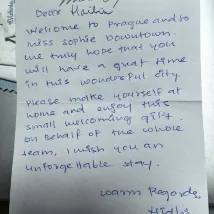 Dear
Welcome to Prague and to
Miss Sophie Downtown.
We truly hope that you
will have a great time
in this wonderful city.
Please make yourself at
home and enjoy this
small welcoming gift.
On behalf of the whole
team, I wish you an
unforgettable stay.
Warm Regards,